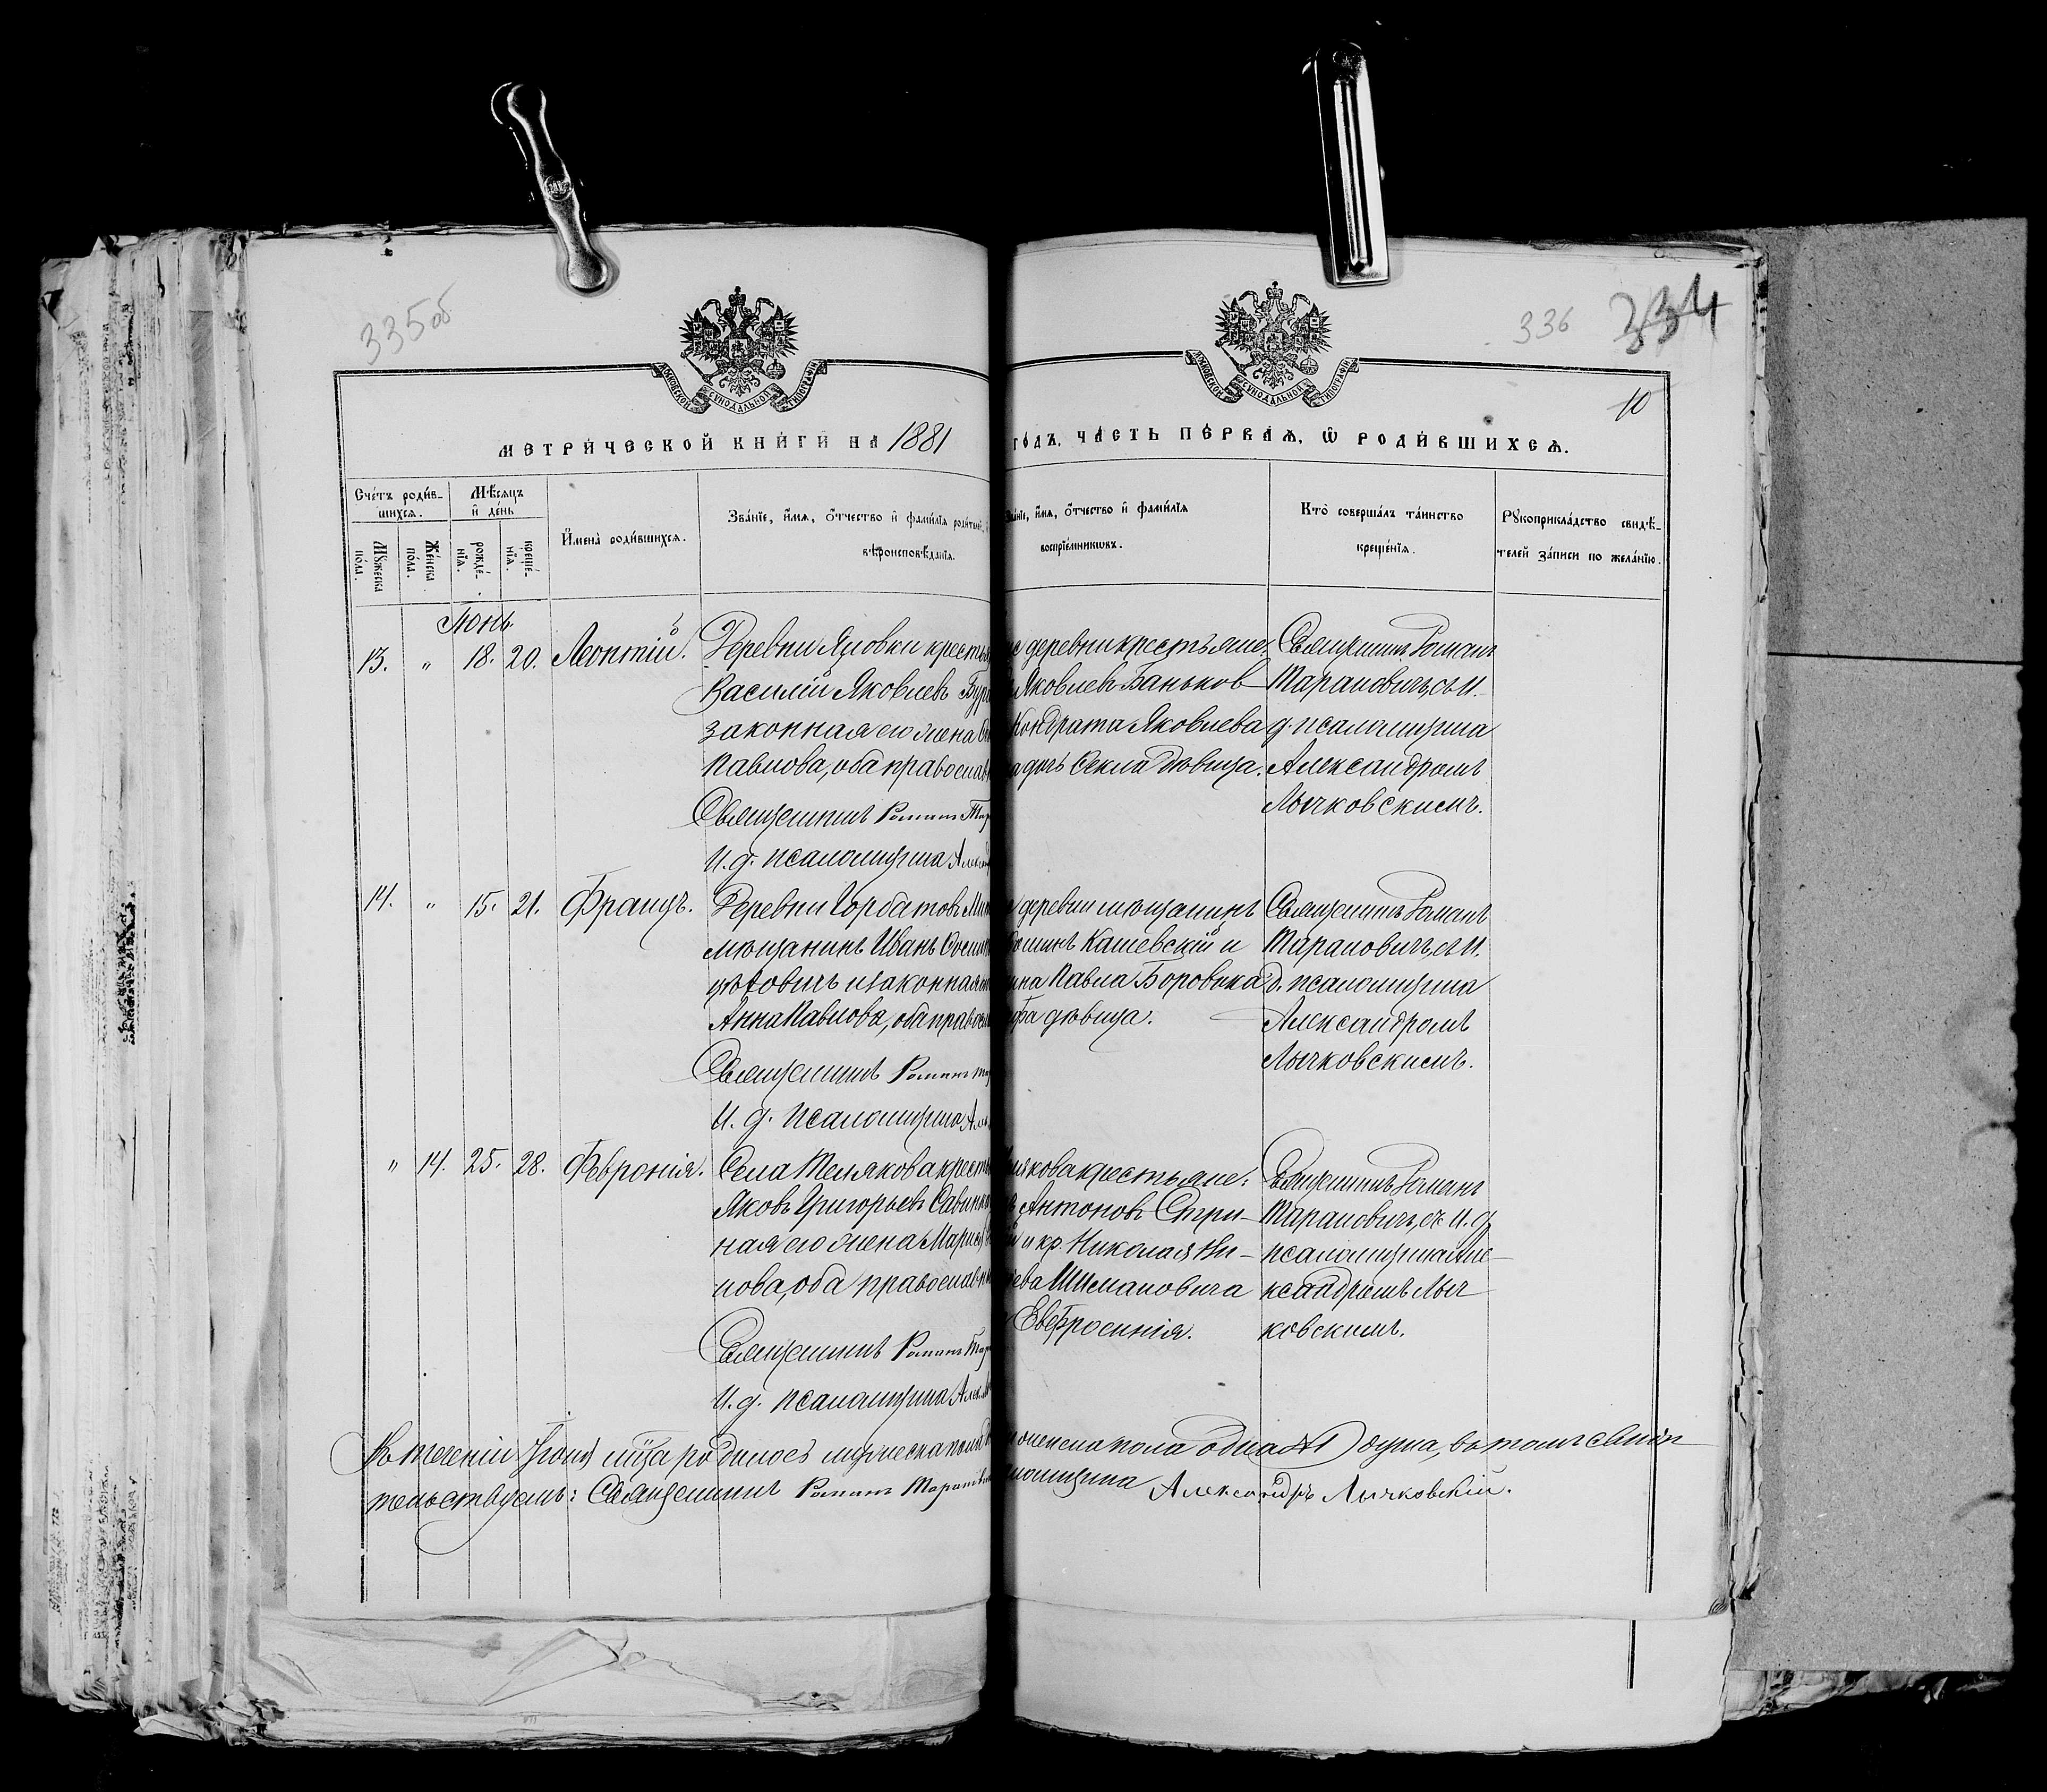 335об
336 334
10
МОСКОВСКОЙ СѴНОДАЛЬНОЙ ТИПОГРАФІИ
МОСКОВСКОЙ СѴНОДАЛЬНОЙ ТИПОГРАФІИ
МЕТРИ́ЧЕСКОЙ КНИ́ГИ НА 1881
ГО́ДЪ, ЧА́СТЬ ПЕ́РВАѦ, Ѡ РОДИ́ВШИХСѦ.
Сче́тъ роди́в-
шихсѧ.
Мꙋ́жеска по́ла.
Же́нска по́ла.
Мѣ́сѧцъ
и де́нь
рожде́-
нїѧ.
креще́-
нїѧ.
И҆мена̀ роди́вшихсѧ.
Зва́нїе, и҆́мѧ, ѻ҆́тчество и҆ фами́лїѧ роди́телей,
вѣроисповѣ́данїѧ.
Зва́нїе, и҆́мѧ, ѻ҆́тчество и҆ фами́лїѧ
воспрїе́мникѡвъ.
Кто̀ соверша́лъ та́инство
креще́нїѧ.
Рꙋкоприкла́дство свидѣ́-
телей за́писи по жела́нїю.
Іюнь
13. " 18. 20. Леонтій.
Деревни Яловки кресть
Василій Яковлевъ Бур
законная его жена
Павлова, оба православ
Священникъ Романъ Тар
И. д. псаломщика Алекс
деревни крестьяне:
Яковлевъ Баньков
Кондрата Яковлева
дочь Фекла дѣвица.
Священникъ Романъ
Тарановичъ, съ И.
д. псаломщика
Александромъ
Лычковскимъ.
14. " 15. 21. Францъ.
Деревни Горбатовъ
мѣщанинъ Иванъ
и законная
Анна Павлова, оба правосл
Священникъ Романъ Тар
И. д. псаломщика Але
деревни мѣщанинъ
Кашевскій и
Павла Боровика
дѣвица.
Священникъ Романъ
Тарановичъ, съ И.
д. псаломщика
Александромъ
Лычковскимъ.
" 14. 25. 28. Февронія.
Села Телякова кресть
Яковъ Григорьевъ Савин
ная его жена Марія
нова, оба православн
Священникъ Романъ Тар
И. д. псаломщика Алек
лякова крестьяне:
Антоновъ Стри-
й и кр. Николая Ни-
ева Шимановича
Евфросинія.
Священникъ Романъ
Тарановичъ, съ И. д.
псаломщика Але-
ксандромъ Лыч
ковскимъ.
Въ теченіи Іюня мѣсяца родилось мужеска пола
женска пола одна /1/ душа, въ томъ свидѣ-
тельствуемъ: Священникъ Романъ Таранович
ломщика Александръ Лычковскій.